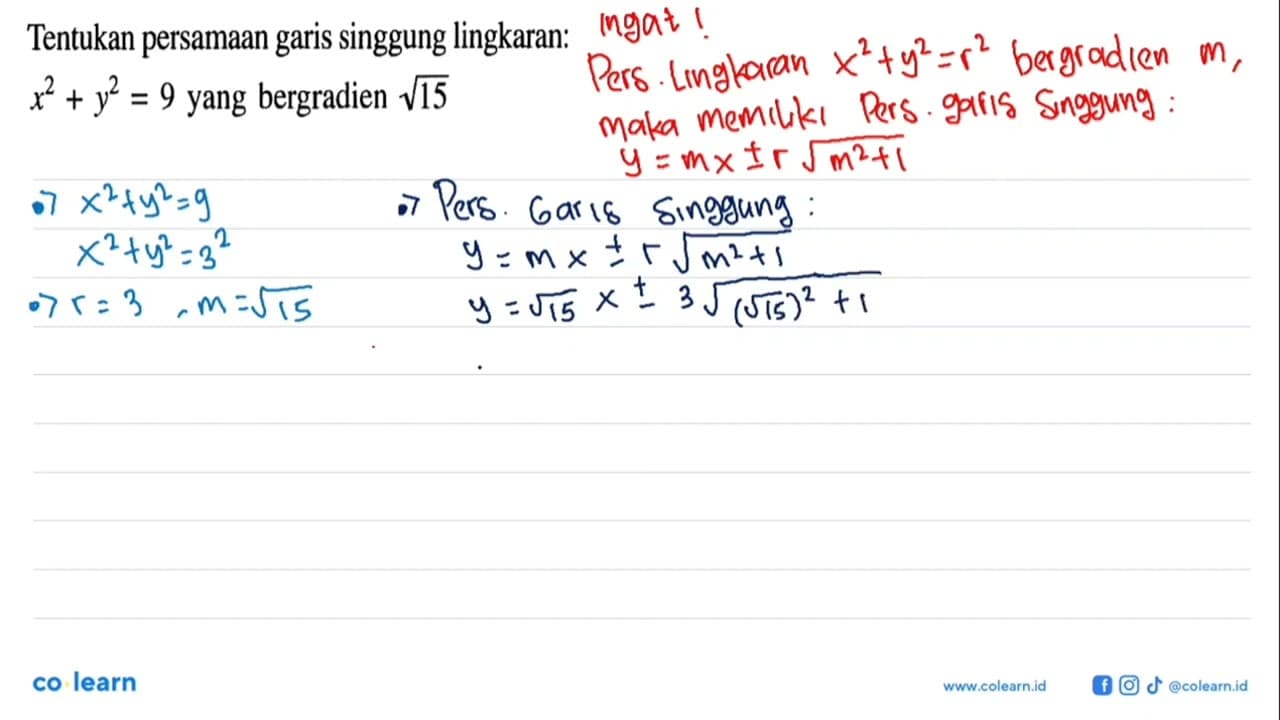 Tentukan persamaan garis singgung lingkaran:
x² + y² = 9 yang bergradien √15
Ingat !
Pers. Lingkaran x²+y²=r² bergradien m,
maka memiliki Pers. garis Singgung :
y = mx ± r √(m²+1)
•> x²+y²=9
x²+y²=3²
•> r = 3 , m=√15
•> Pers. Garis Singgung :
y = m x ± r √(m²+1)
y = √15 x ± 3 √((√15)² + 1)
co learn
www.colearn.id
@colearn.id